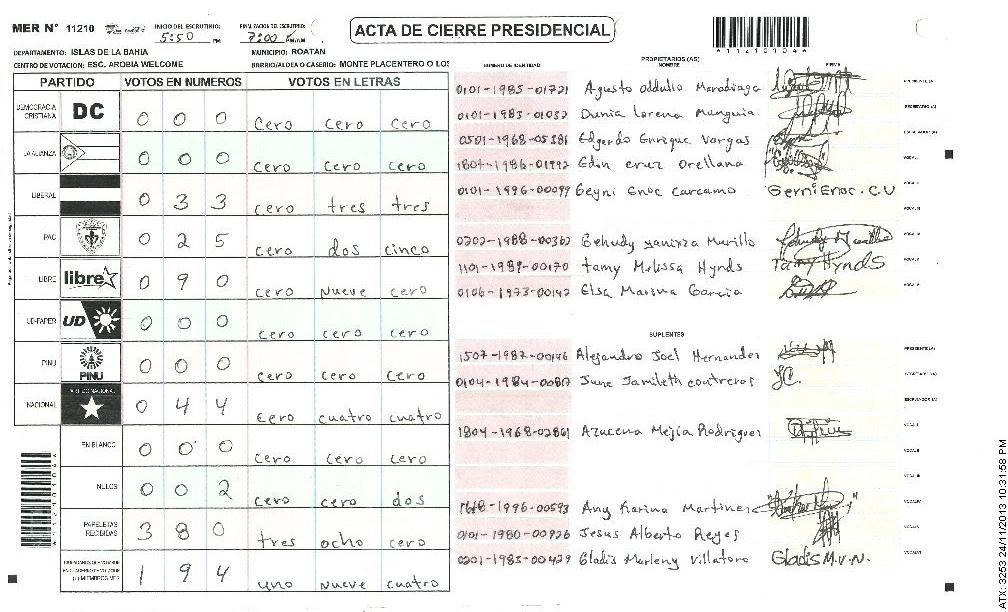 MER N° 11210 INICIO DEL ESCRUTINIO: 5:50 PM FINALIZACION DEL ESCRUTINIO: 7:00 ACTA DE CIERRE PRESIDENCIAL A11210104A
DEPARTAMENTO: ISLAS DE LA BAHIA MUNICIPIO: ROATAN
CENTRO DE VOTACION: ESC. AROBIA WELCOME BARRIO/ALDEA O CASERIO: MONTE PLACENTERO O LOS
PARTIDO VOTOS EN NUMEROS VOTOS EN LETRAS
DEMOCRACIA CRISTIANA DC 0 0 0 cero cero cero
LA ALIANZA 0 0 0 cero cero cero
LIBERAL 0 3 3 cero tres tres
PAC 0 2 5 cero dos cinco
LIBRE libre 0 9 0 cero nueve cero
UD-FAPER UD 0 0 0 cero cero cero
PINU PINU 0 0 0 cero cero cero
NACIONAL PARTIDO NACIONAL 0 4 4 cero cuatro cuatro
EN BLANCO 0 0 0 cero cero cero
NULOS 0 0 2 cero cero dos
PAPELETAS RECIBIDAS 3 8 0 tres ocho cero
1 9 4 uno nueve cuatro
A11210104A
PROPIETARIOS (AS)
NUMERO DE IDENTIDAD NOMBRE FIRMA
0101-1985-01721 Agusto oddulio Maradiaga PRESIDENTE (A)
0101-1983-01032 Dunia Lorena Munguia SECRETARIO (A)
0501-1968-05381 Edgardo Enrique Vargas ESCRUTADOR (A)
1804-1986-01992 Edin cruz Orellana VOCAL I
0101-1996-00099 Geyni Enoc Carcamo Gerni Enoc. C.U VOCAL II
VOCAL III
0202-1988-00362 Gehudy yanizza Murillo VOCAL IV
1101-1989-00170 Tamy Melissa Hynds Tamy Hynds VOCAL V
0106-1973-00142 Elsa Marina Garcia VOCAL VI
SUPLENTES
1507-1987-00146 Alejandro Joel Hernandez PRESIDENTE (A)
0104-1984-00817 June Jamileth contreros J.C. SECRETARIO (A)
ESCRUTADOR (A)
1804-1968-02861 Azucena Mejia Rodriguez VOCAL I
VOCAL II
VOCAL III
-1996-00593 Any Karina Martinez VOCAL IV
0101-1980-00926 Jesus Alberto Reyes VOCAL V
0201-1985-00429 Gladis Marleny Villatoro Gladis M.V.N. VOCAL VI
ATX: 3253 24/11/2013 10:31:58 PM